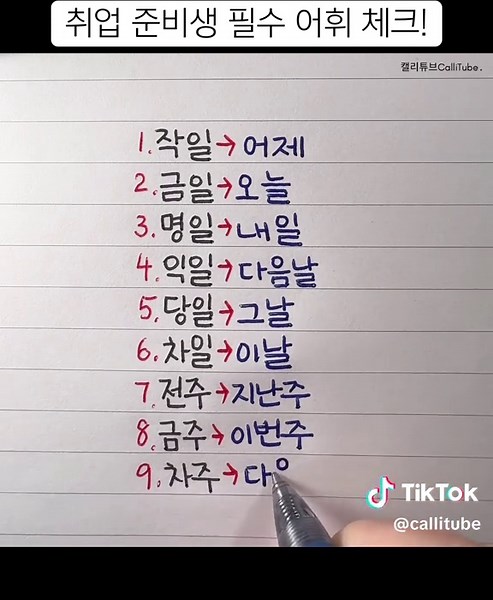 취업 준비생 필수 어휘 체크!
캘리튜브CalliTube.
1.작일→어제
2.금일→오늘
3.명일→내일
4.익일→다음날
5.당일→그날
6.차일→이날
7.전주→지난주
8.금주→이번주
9.차주→다으
TikTok
@callitube